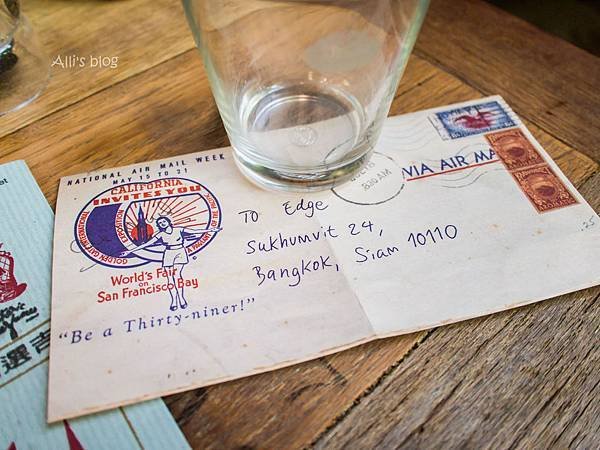 Alli's blog
NATIONAL AIR MAIL WEEK
MAY 15 TO 21
CALIFORNIA
INVITES YOU
World's Fair
on
San Francisco Bay
"Be a Thirty-niner!"
8:30 AM
VIA AIR MA
TO Edge
Sukhumvit 24,
Bangkok, Siam 10110